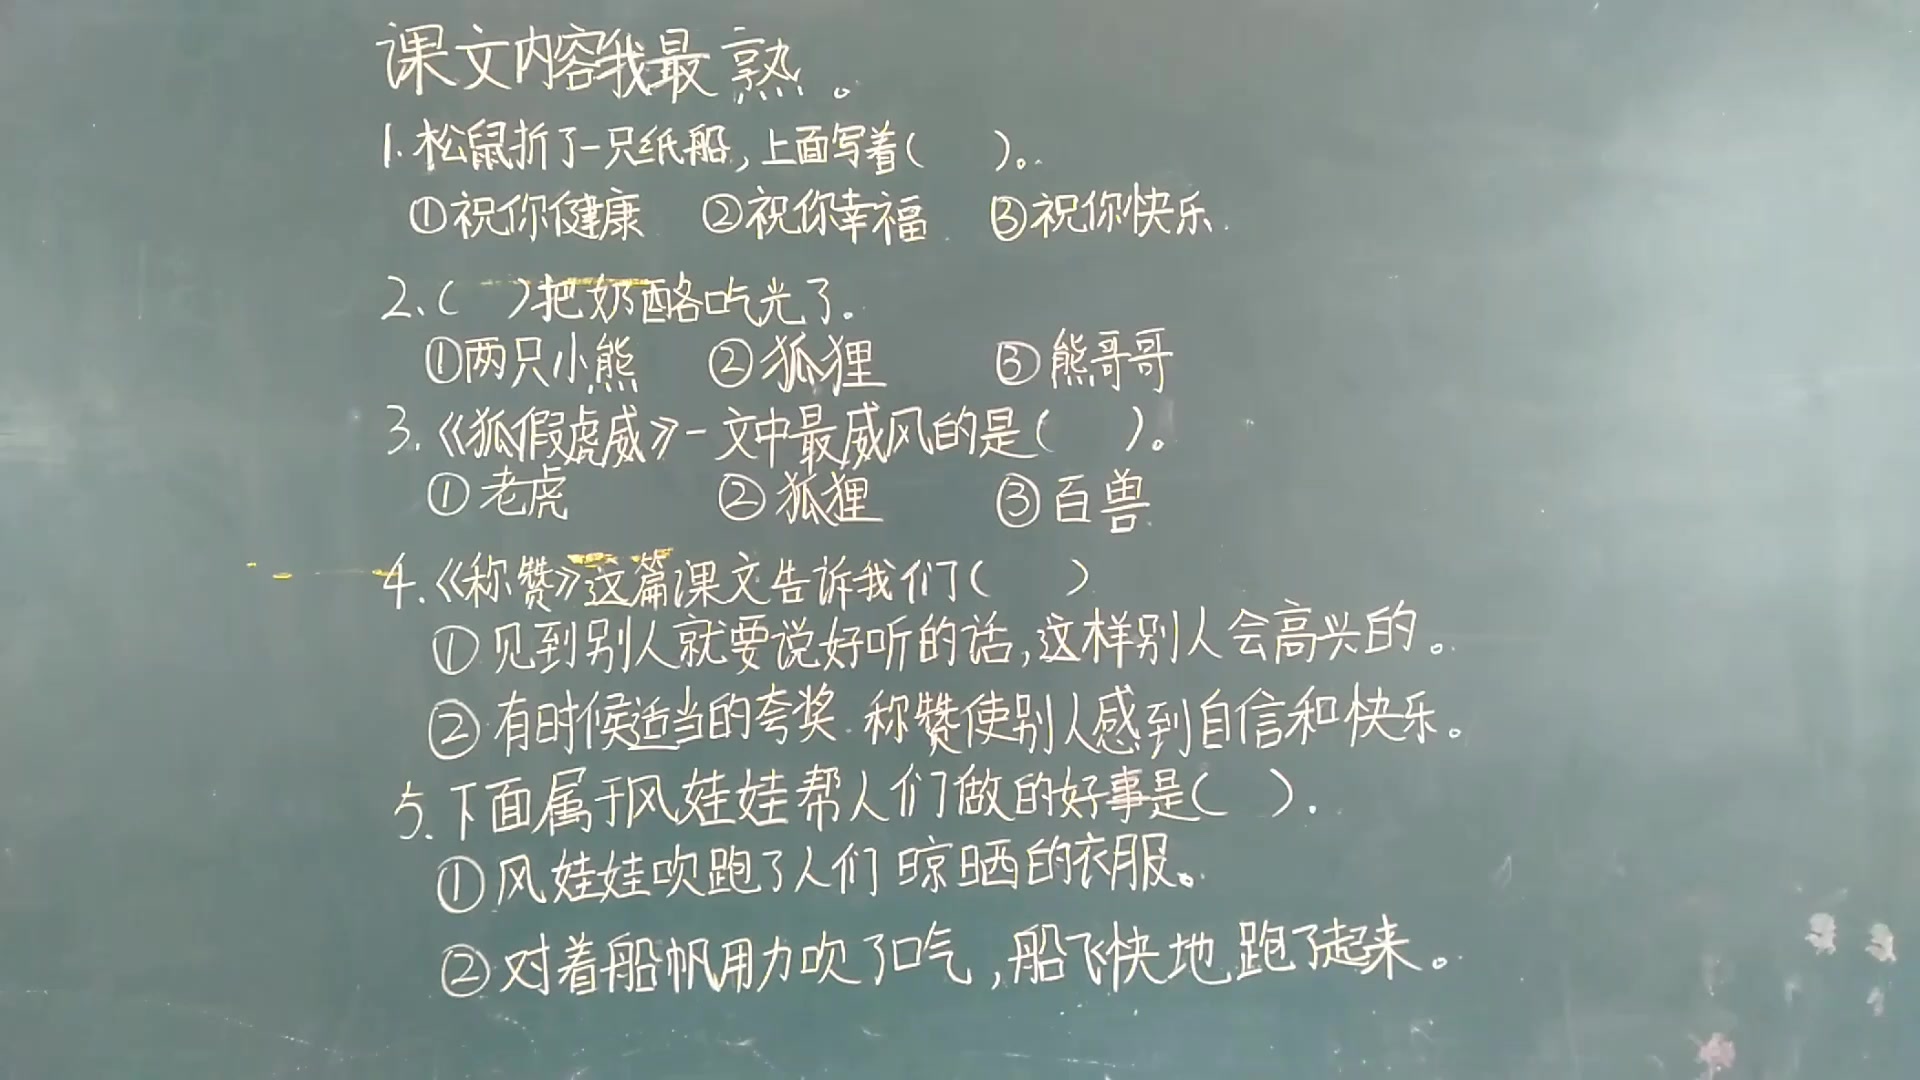 课文内容我最熟。
1.松鼠折了一只纸船,上面写着(    )。
①祝你健康  ②祝你幸福  ③祝你快乐.
2.(    )把奶酪吃光了.
①两只小熊  ②狐狸  ③熊哥哥
3.《狐假虎威》一文中最威风的是(    )。
①老虎  ②狐狸  ③百兽
4.《称赞》这篇课文告诉我们(    )
①见到别人就要说好听的话,这样别人会高兴的。
②有时候适当的夸奖.称赞使别人感到自信和快乐。
5.下面属于风娃娃帮人们做的好事是(    ).
①风娃娃吹跑了人们晾晒的衣服。
②对着船帆用力吹了口气,船飞快地跑了起来。